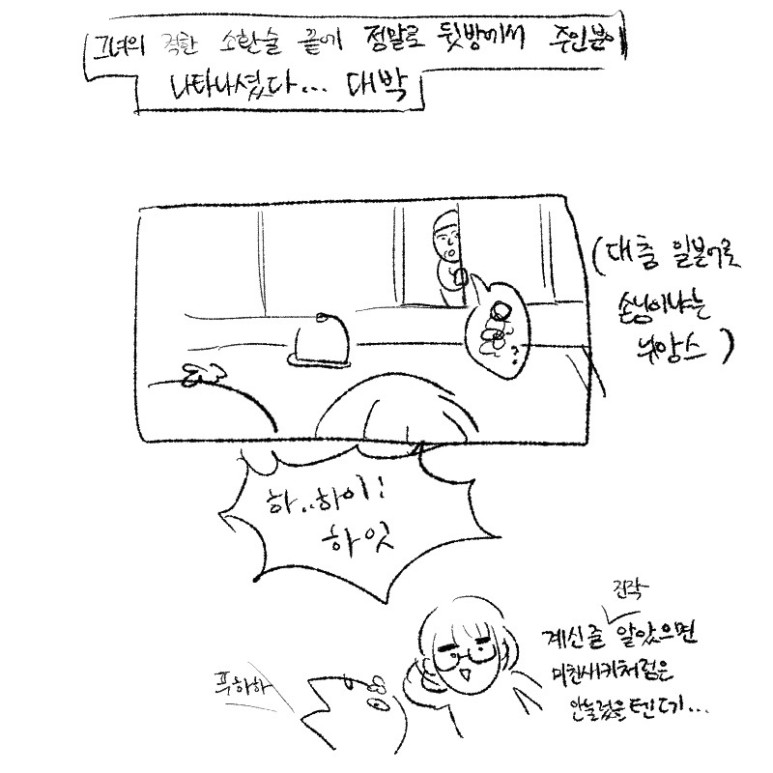 그녀의 적한 소환술 끝에 정말로 뒷방에서 주인분이
나타나셨다... 대박
(대충 일본어로
손님이냐는
뉘앙스)
?
하..하이!
하잇
진작
계신줄 알았으면
미친새키처럼은
안놀렸을텐디...
푸하하